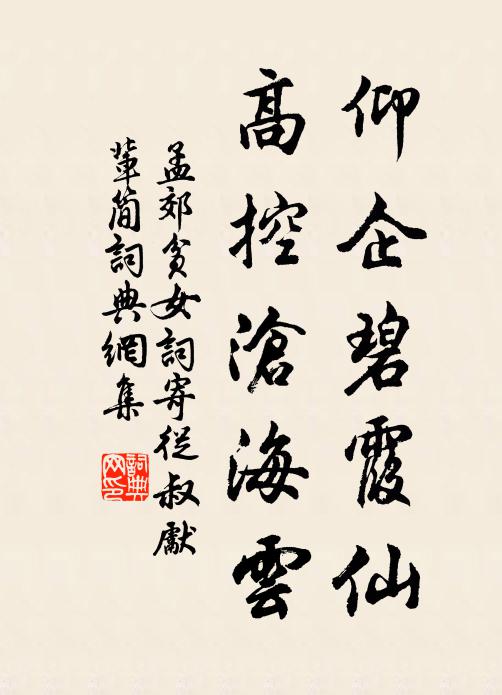 仰企碧霞仙
高控滄海雲
孟郊貧女詞寄從叔獻
輩簡詞典網集
詞典
网印